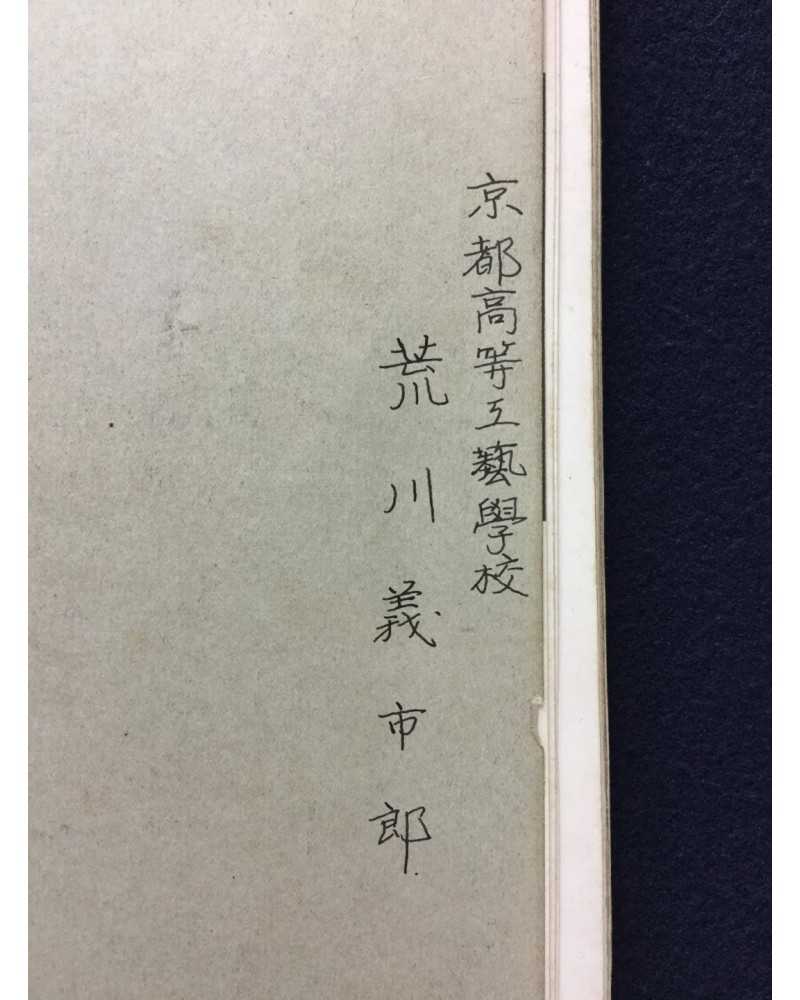 京都高等工藝學校
荒川義市郎